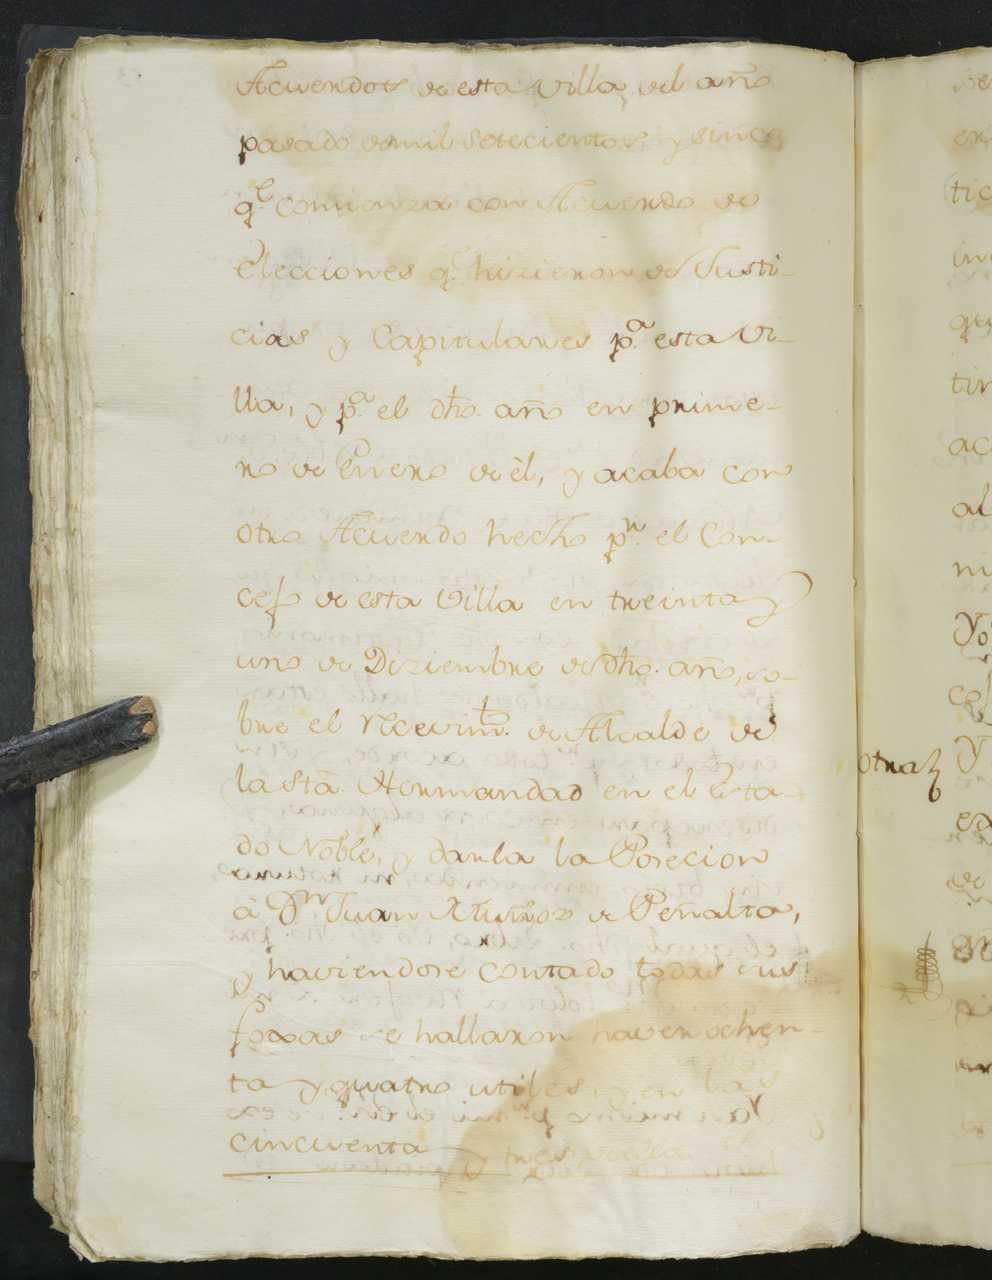 Acuerdos de esta Villa, del año
pasado de mil setecientos y sinco
q.e comienza con Acuerdo de
elecciones q.e hizieron de Justi-
cias y Capitulares p.a esta Vi-
lla, y p.a el dho. año en prime-
ro de Enero de èl, y acaba con
otro Acuerdo hecho p.r el Con-
cejo de esta Villa en treinta y
uno de Diziembre de dho. año, so-
bre el Recevim.to de Alcalde de
la sta. Hermandad en el Esta-
do Noble, y darla la Posecion
â D.n Juan de Peñalta,
y haviendose contado todas sus
foxas se hallaron haver ochen-
ta y quatro utiles, y en las
cincuenta y tres
otra